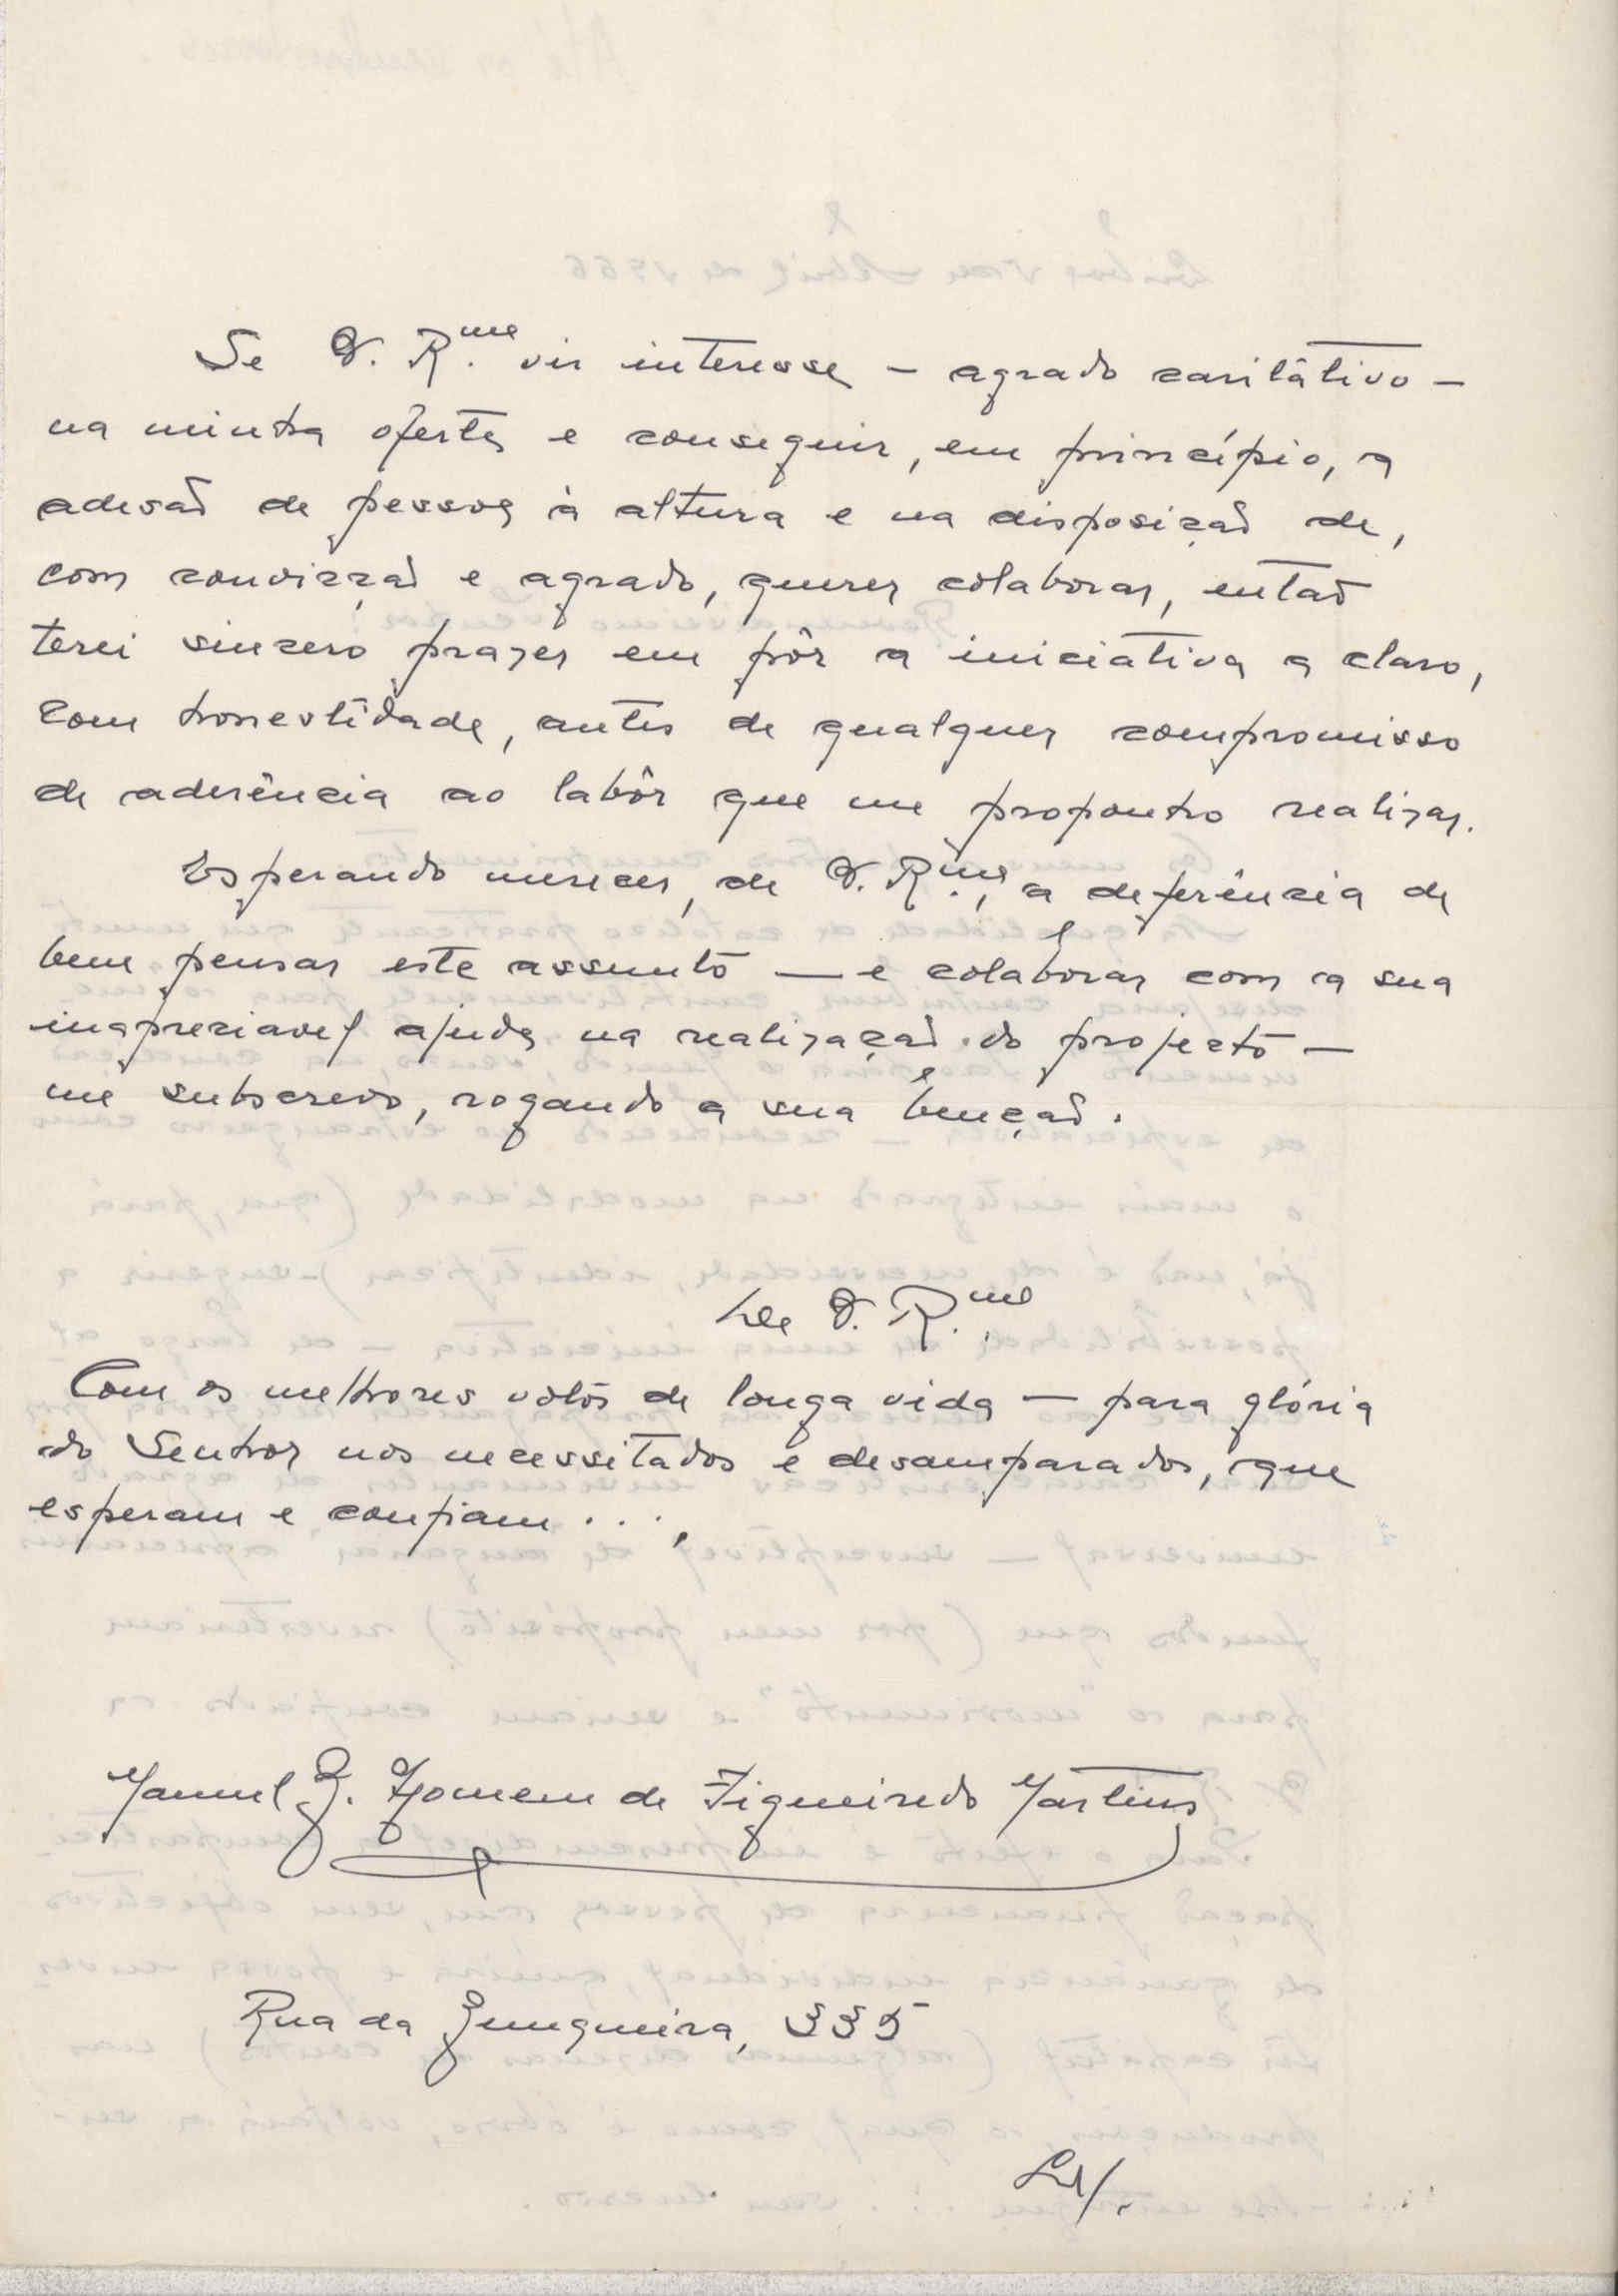 Se V. R.me vir interesse – agrado caritativo –
na minha oferta e conseguir, em princípio, a
adesão de pessoa à altura e na disposição de,
com convicção e agrado, querer colaborar, então
terei sincero prazer em pôr a iniciativa a claro,
com honestidade, antes de qualquer compromisso
de aderência ao labôr que me proponho realizar.
Esperando merecer, de V. R.me, a deferência de
bem pensar este assunto — e colaborar com a sua
inapreciavel ajuda na realização do projecto —
me subscrevo, rogando a sua benção.
De V. R.me
Com os melhores votos de longa vida — para glória
do Senhor nos necessitados e desamparados, que
esperam e confiam . . . ,
Manuel J. Homem de Figueiredo Martins
Rua da Junqueira, 335
Lx/.